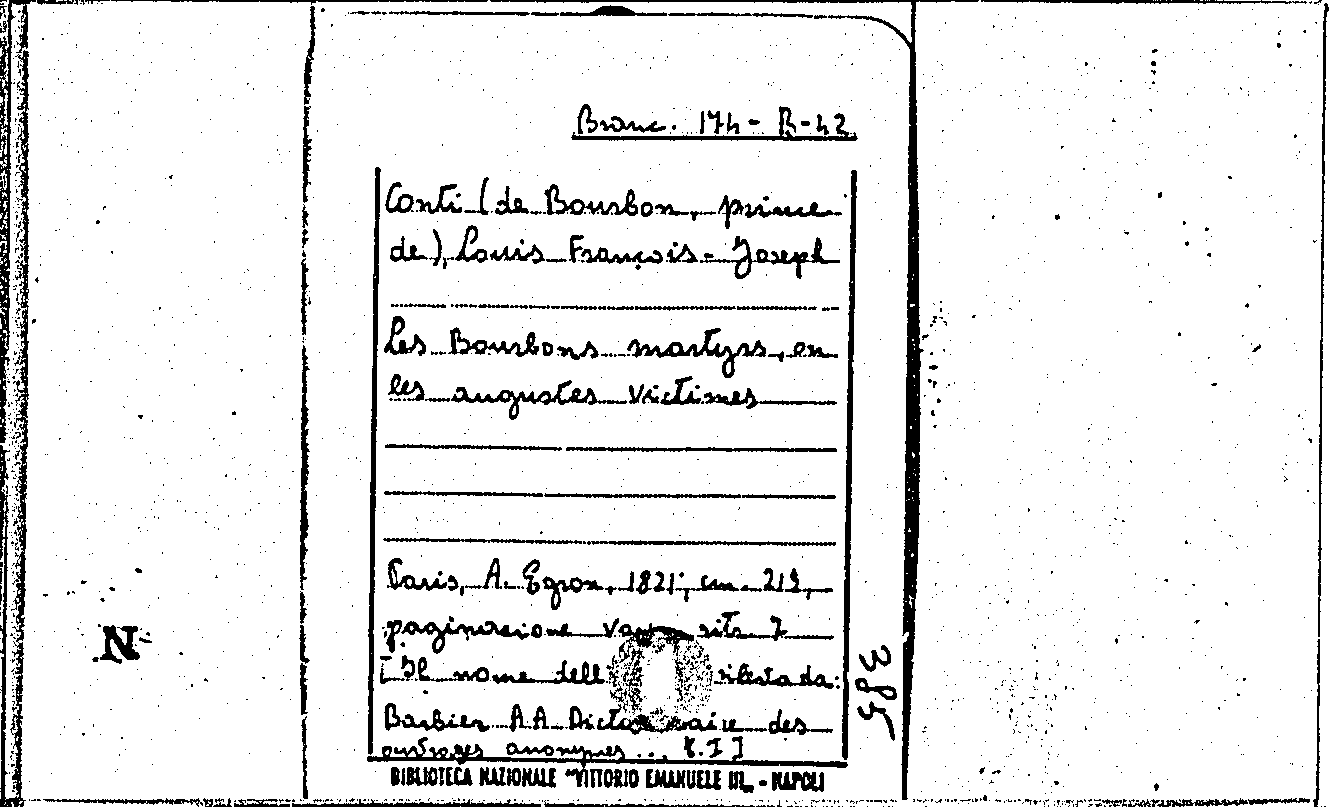 Branc. 174 - B-42
Conti (de Bourbon, prince
de), Louis François-Joseph
Les Bourbons martyrs, ou
les augustes victimes
Paris, A. Egron, 1821; cm. 213,
paginazione
[Il nome dell
Barbier A A Dictionnaire des
ouvrages anonymes... t. I]
BIBLIOTECA NAZIONALE "VITTORIO EMANUELE III„ - NAPOLI
N
385